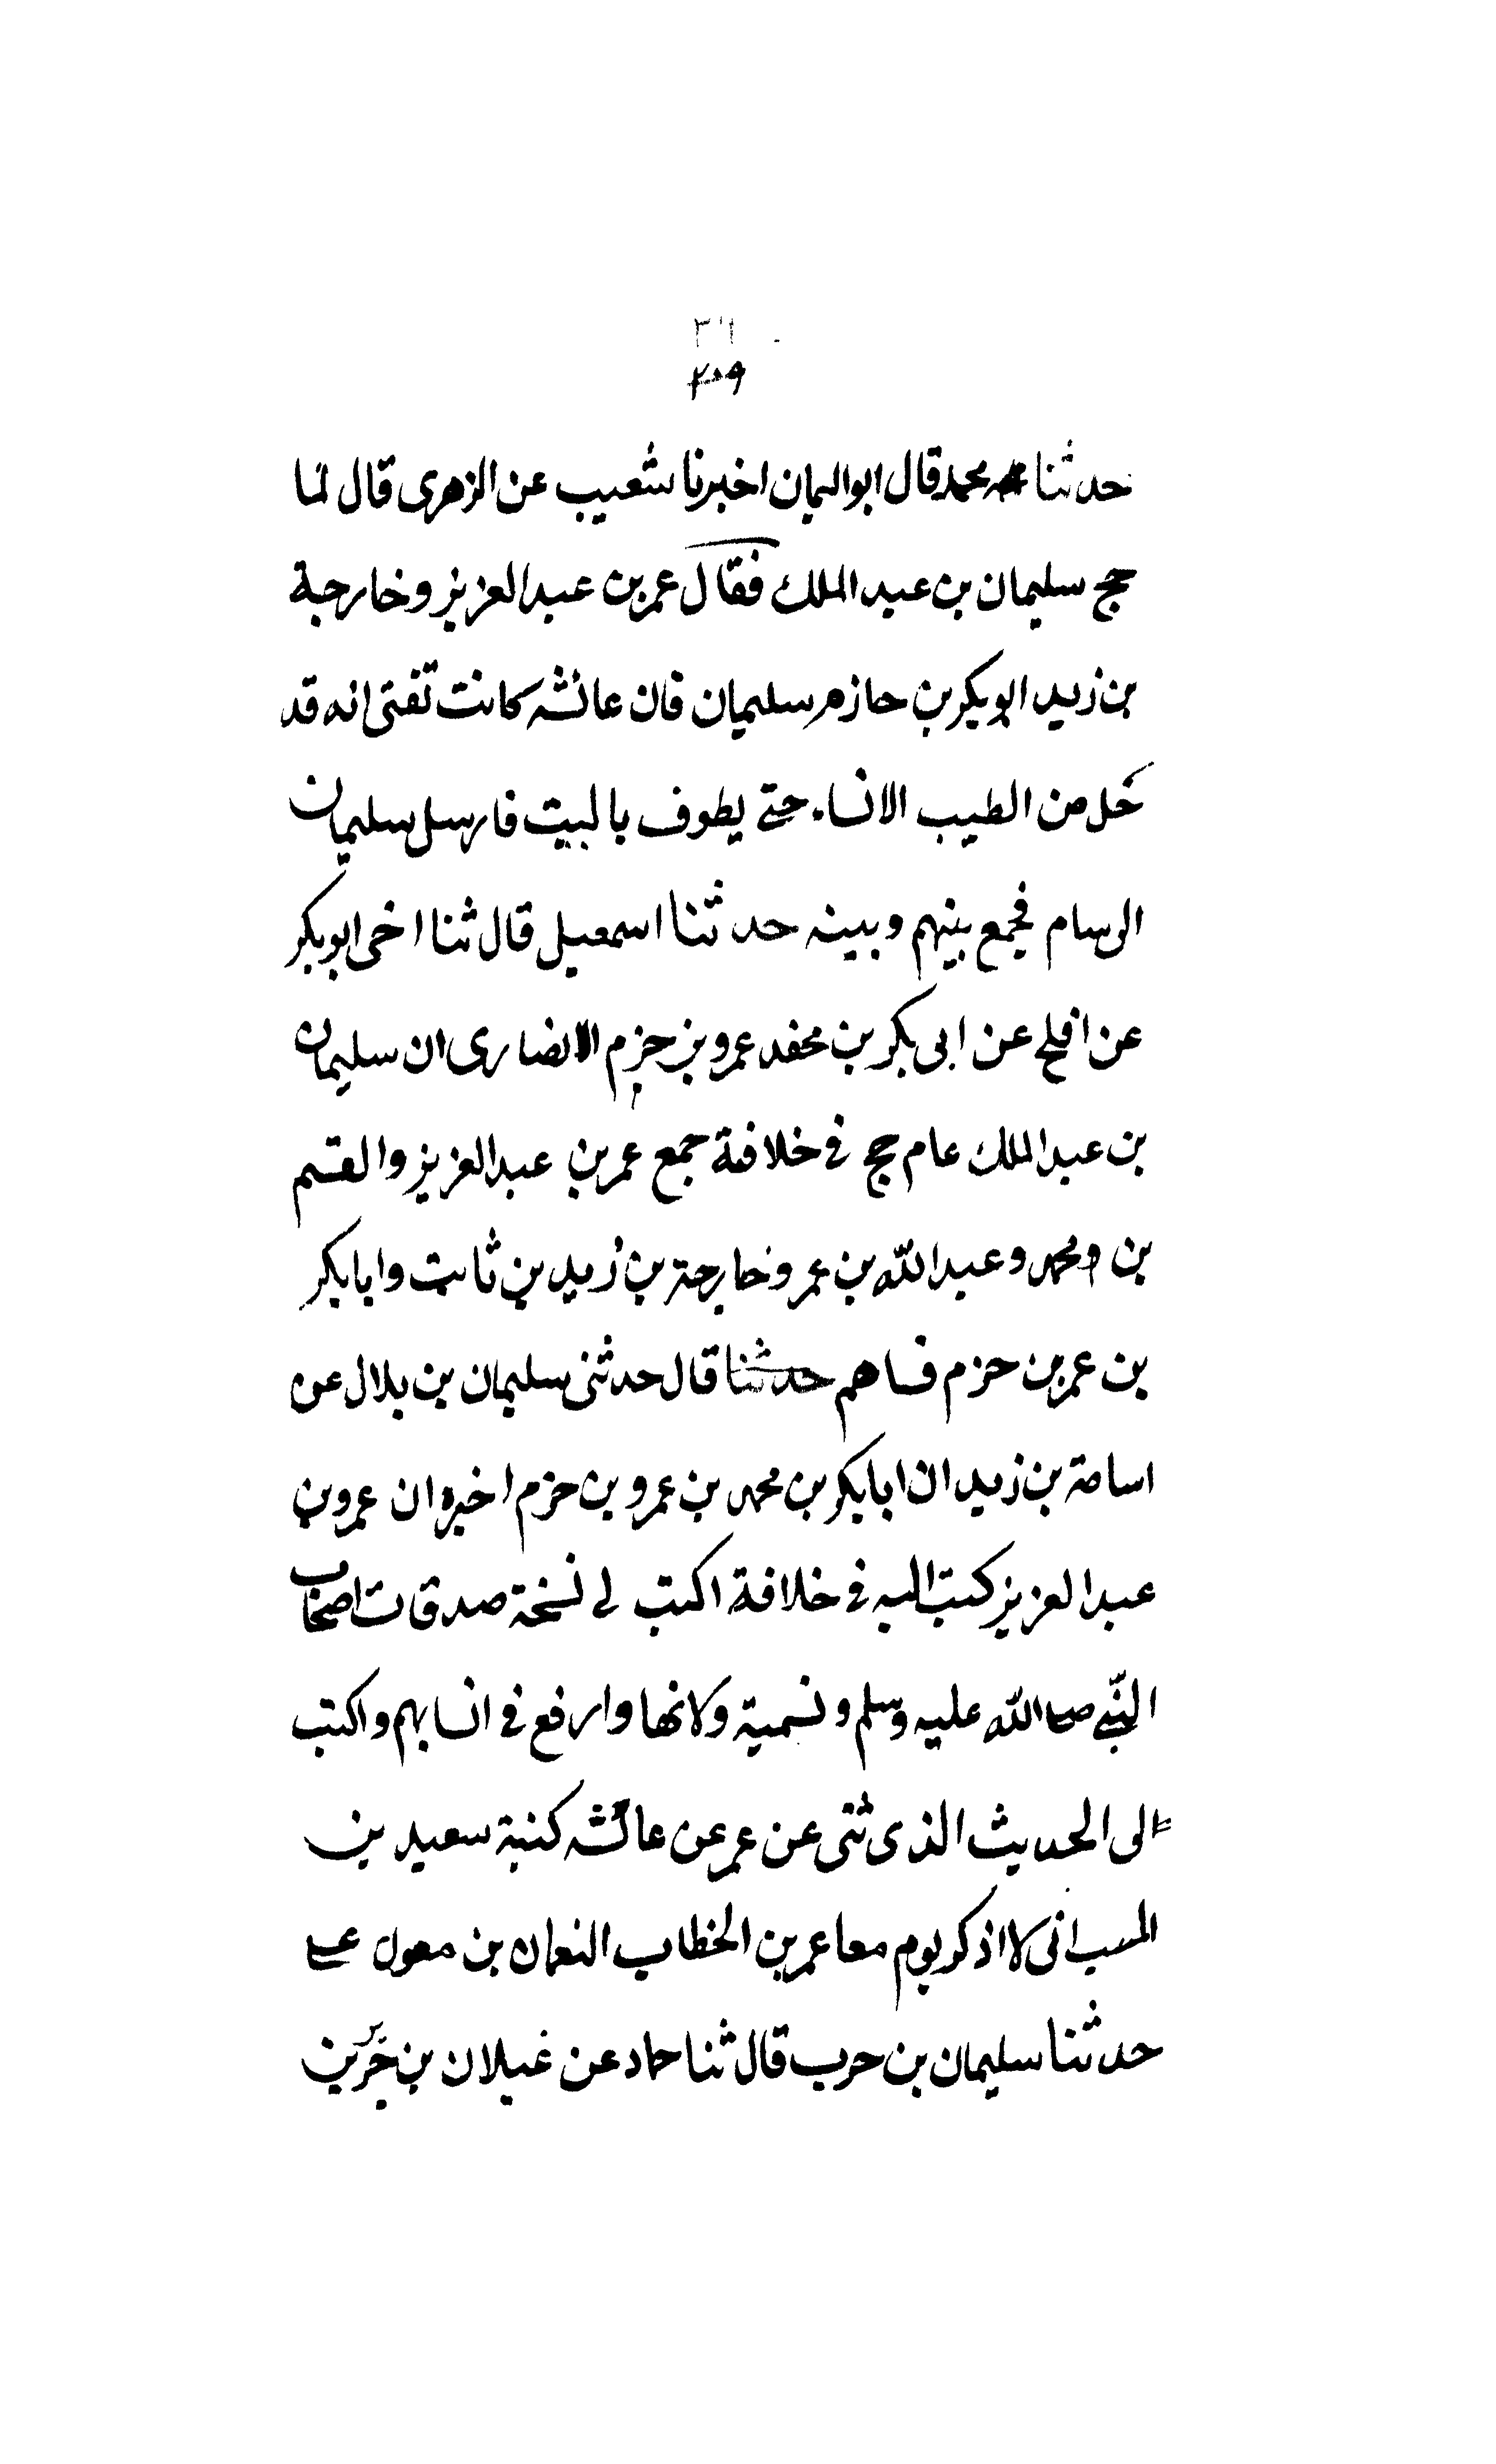 حدثنا محمد قال ابواليمان اخبرنا شعيب عن الزهرى قال لما
حج سليمان بن عبد الملك فقال عمر بن عبد العزيز وخارجة
بن زيد ابوبكر بن حازم سليمان فان عائشه كانت تفتى انه قد
حل من الطيب الانساء حتى يطوف بالبيت فارسل سليمان
الى سام فجمع بينهم وبينه حدثنا اسمعيل قال ثنا اخى ابوبكر
عن افلح عن ابى بكر بن محفد عمرو بن حزم الانصارى ان سليمان
بن عبد الملك عام حج فى خلافة جمع عمر بن عبد العزيز والقسم
بن محمد وعبد الله بن عمر وخارجة بن زيد بن ثابت وابابكر
بن عمر بن حزم فساهم حدثنا قال حدثنى سليمان بن بلال عن
اسامة بن زيد ان ابابكر بن محمد بن عمرو بن حزم اخبره ان عمرو بن
عبد العزيز كتب اليه فى خلافة اكتب لى نسخة صدقات اصحاب
النبى صلى الله عليه وسلم ونسمية ولانها وارفع فى انسابهم واكتب
الى الحديث الذى ثنى عن عمر عن عائشه كنبة سعيد بن
المسب انى لا اذكر يوم معا عمر بن الخطاب النعمان بن معول على
حدثنا سليمان بن حرب قال ثنا حماد عن غيلان بن جرير